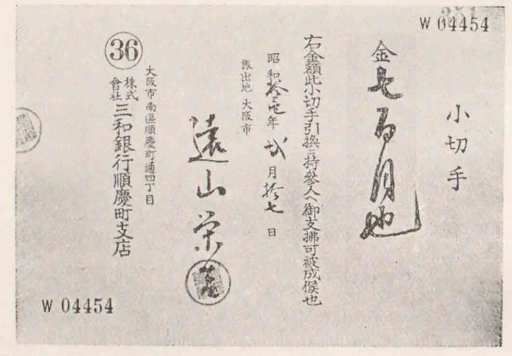 W 04454
小切手
金七百円也
右金額此小切手引換ニ持參人ヘ御支拂可被成候也
昭和拾七年 弍月拾七日
振出地 大阪市
遠山栄
大阪市南區順慶町通四丁目
株式會社三和銀行順慶町支店
36
W 04454